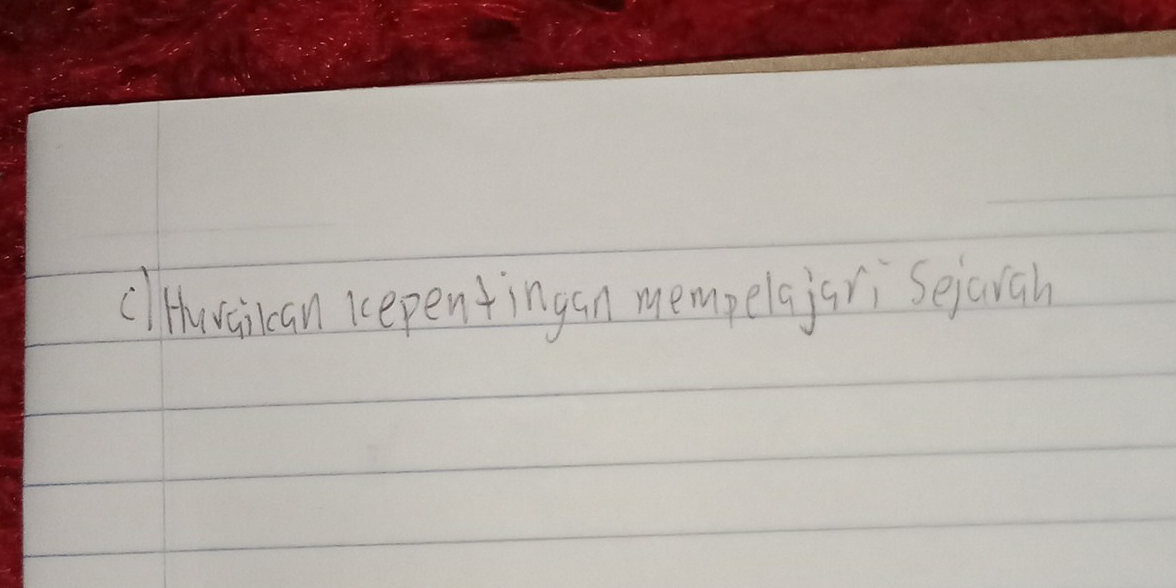 c) Huraikan kepentingan mempelajari Sejarah